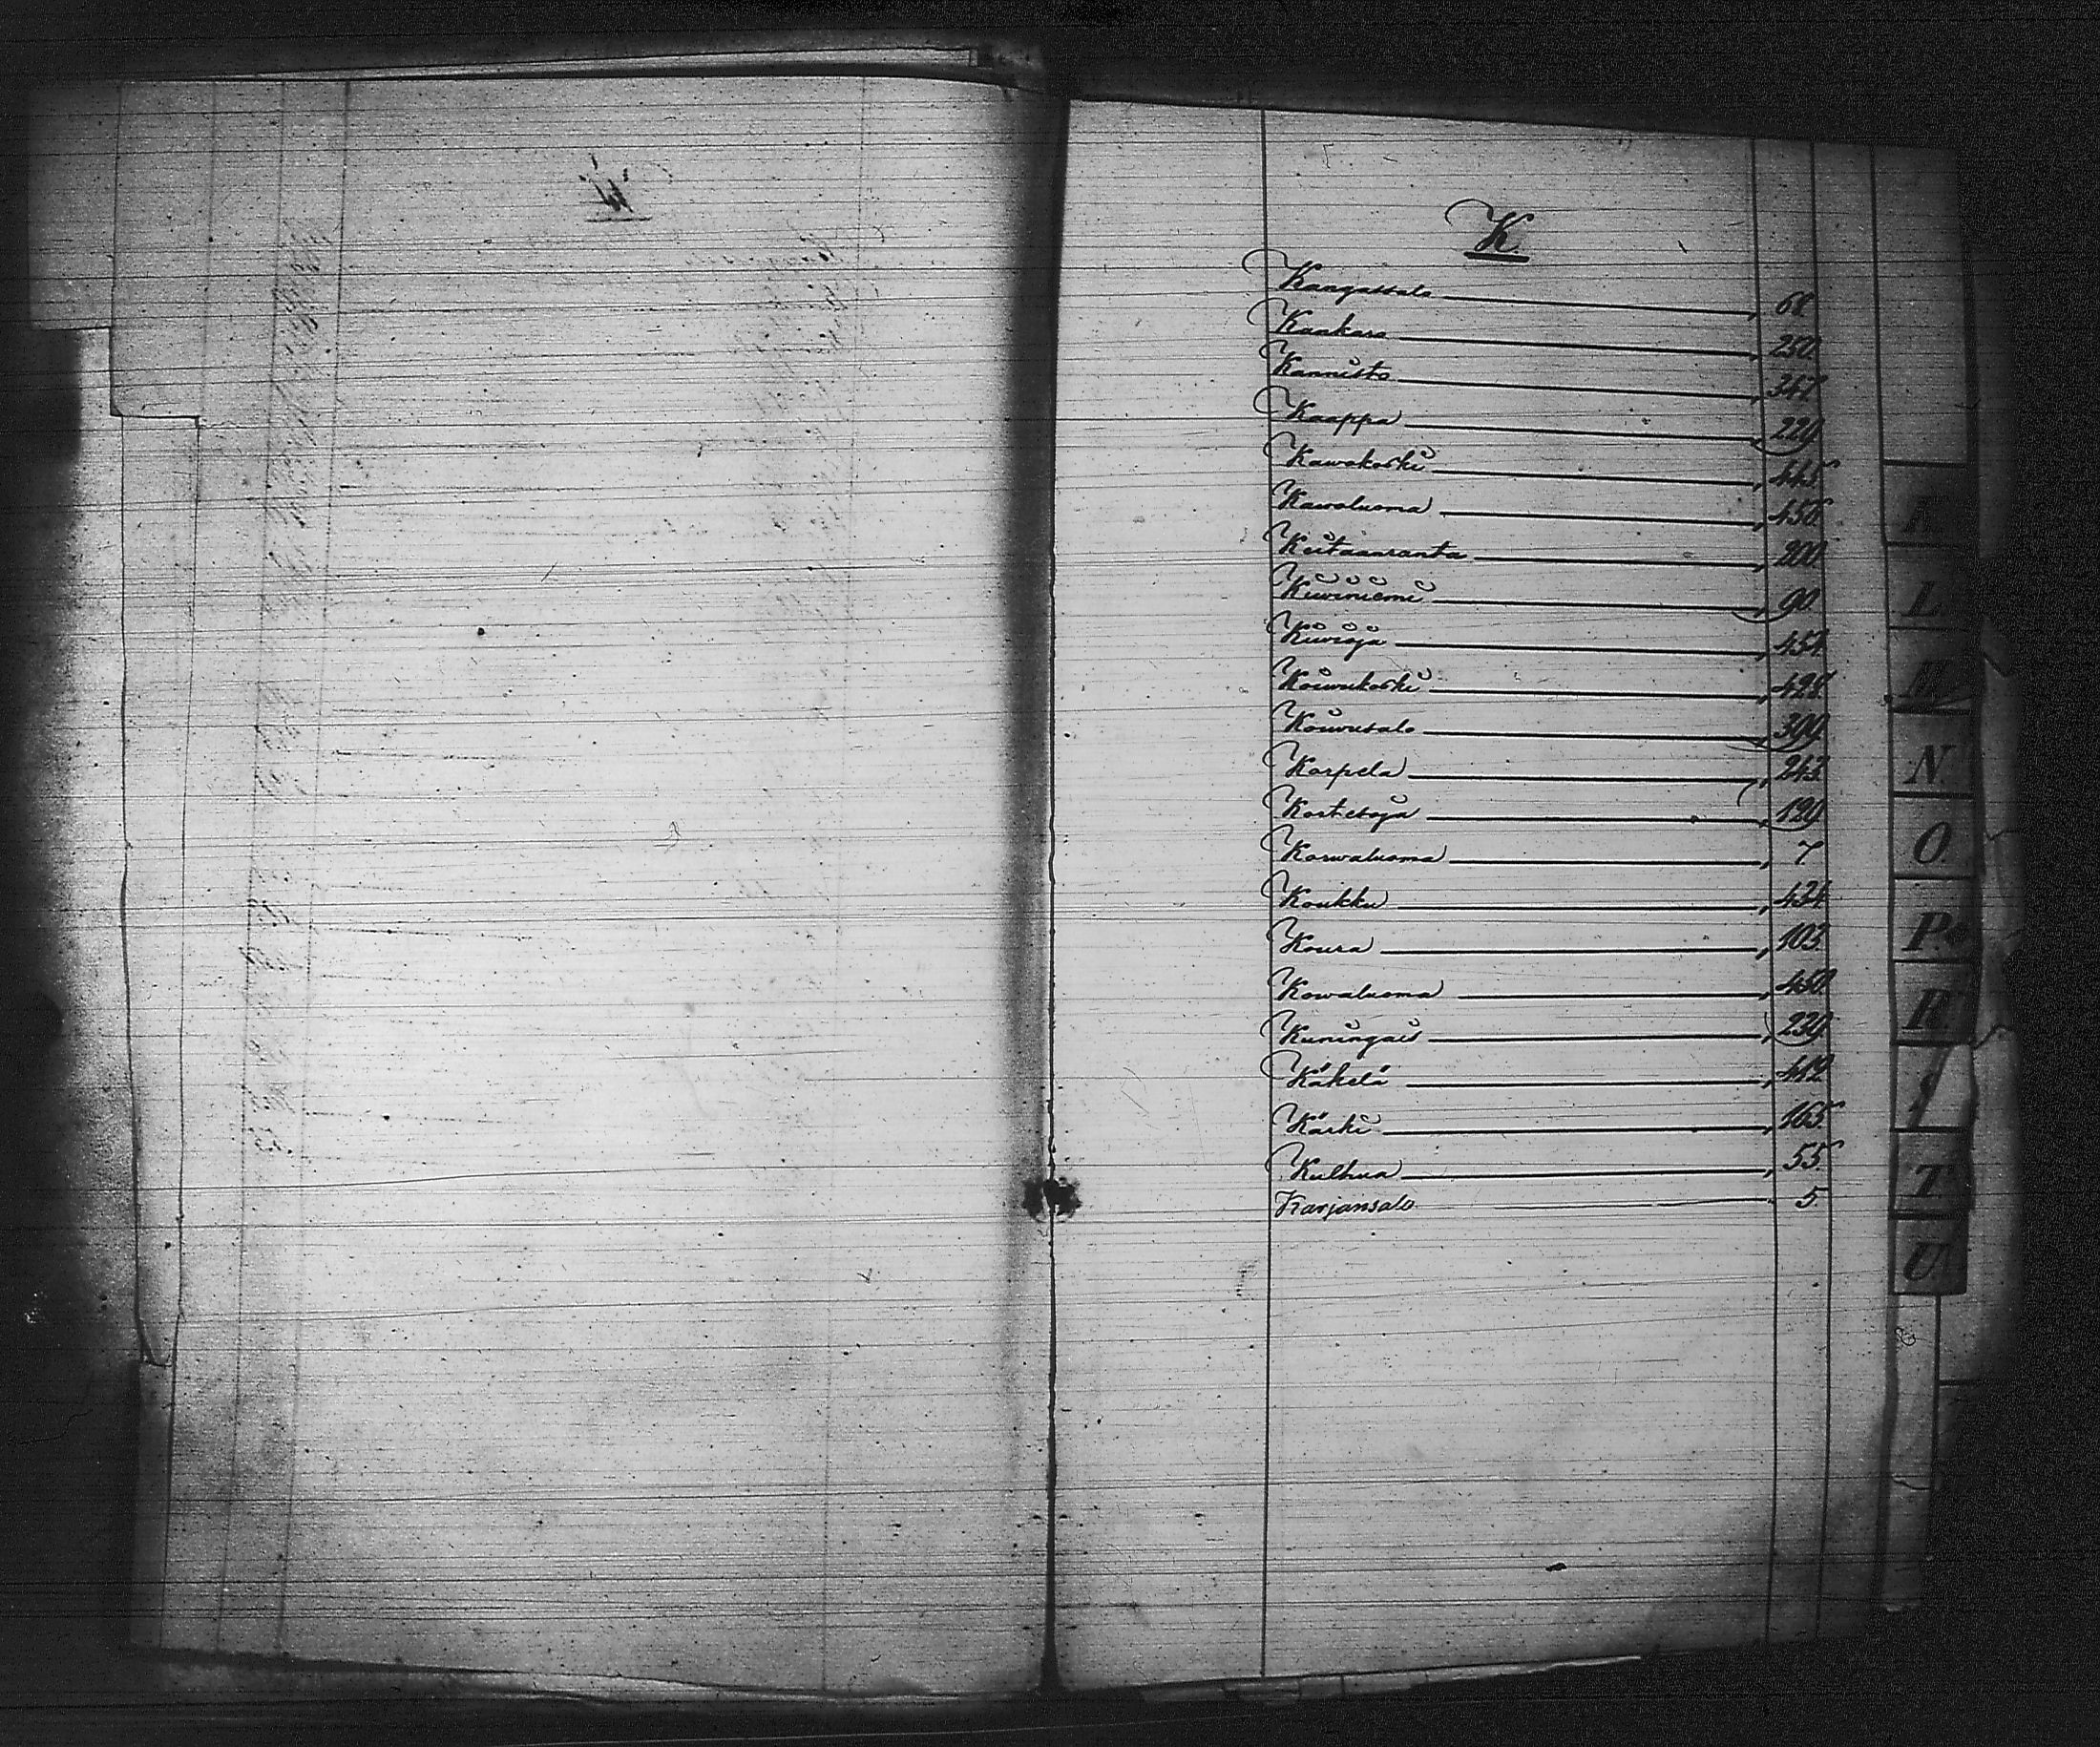 K.
Kangassalo 68.
Kaakara 250.
Kannisto 347.
Kaappa 229.
Kawakoski 445.
Kawaluoma 456.
Keitaanranta 200.
Kiwiniemi 90.
Kiwioja 454.
Koiwukoski 428.
Koiwusalo 399.
Korpela 243.
Kortetoja 129.
Korwaluoma 7
Koukku 434
Koura 103
Kowaluoma 450.
Kuningais 239.
Käkelä 412
Kärki 165.
Kulhua 55.
Karjansalo 5.
K
L
M
N
O.
P.
R.
S
T
U.